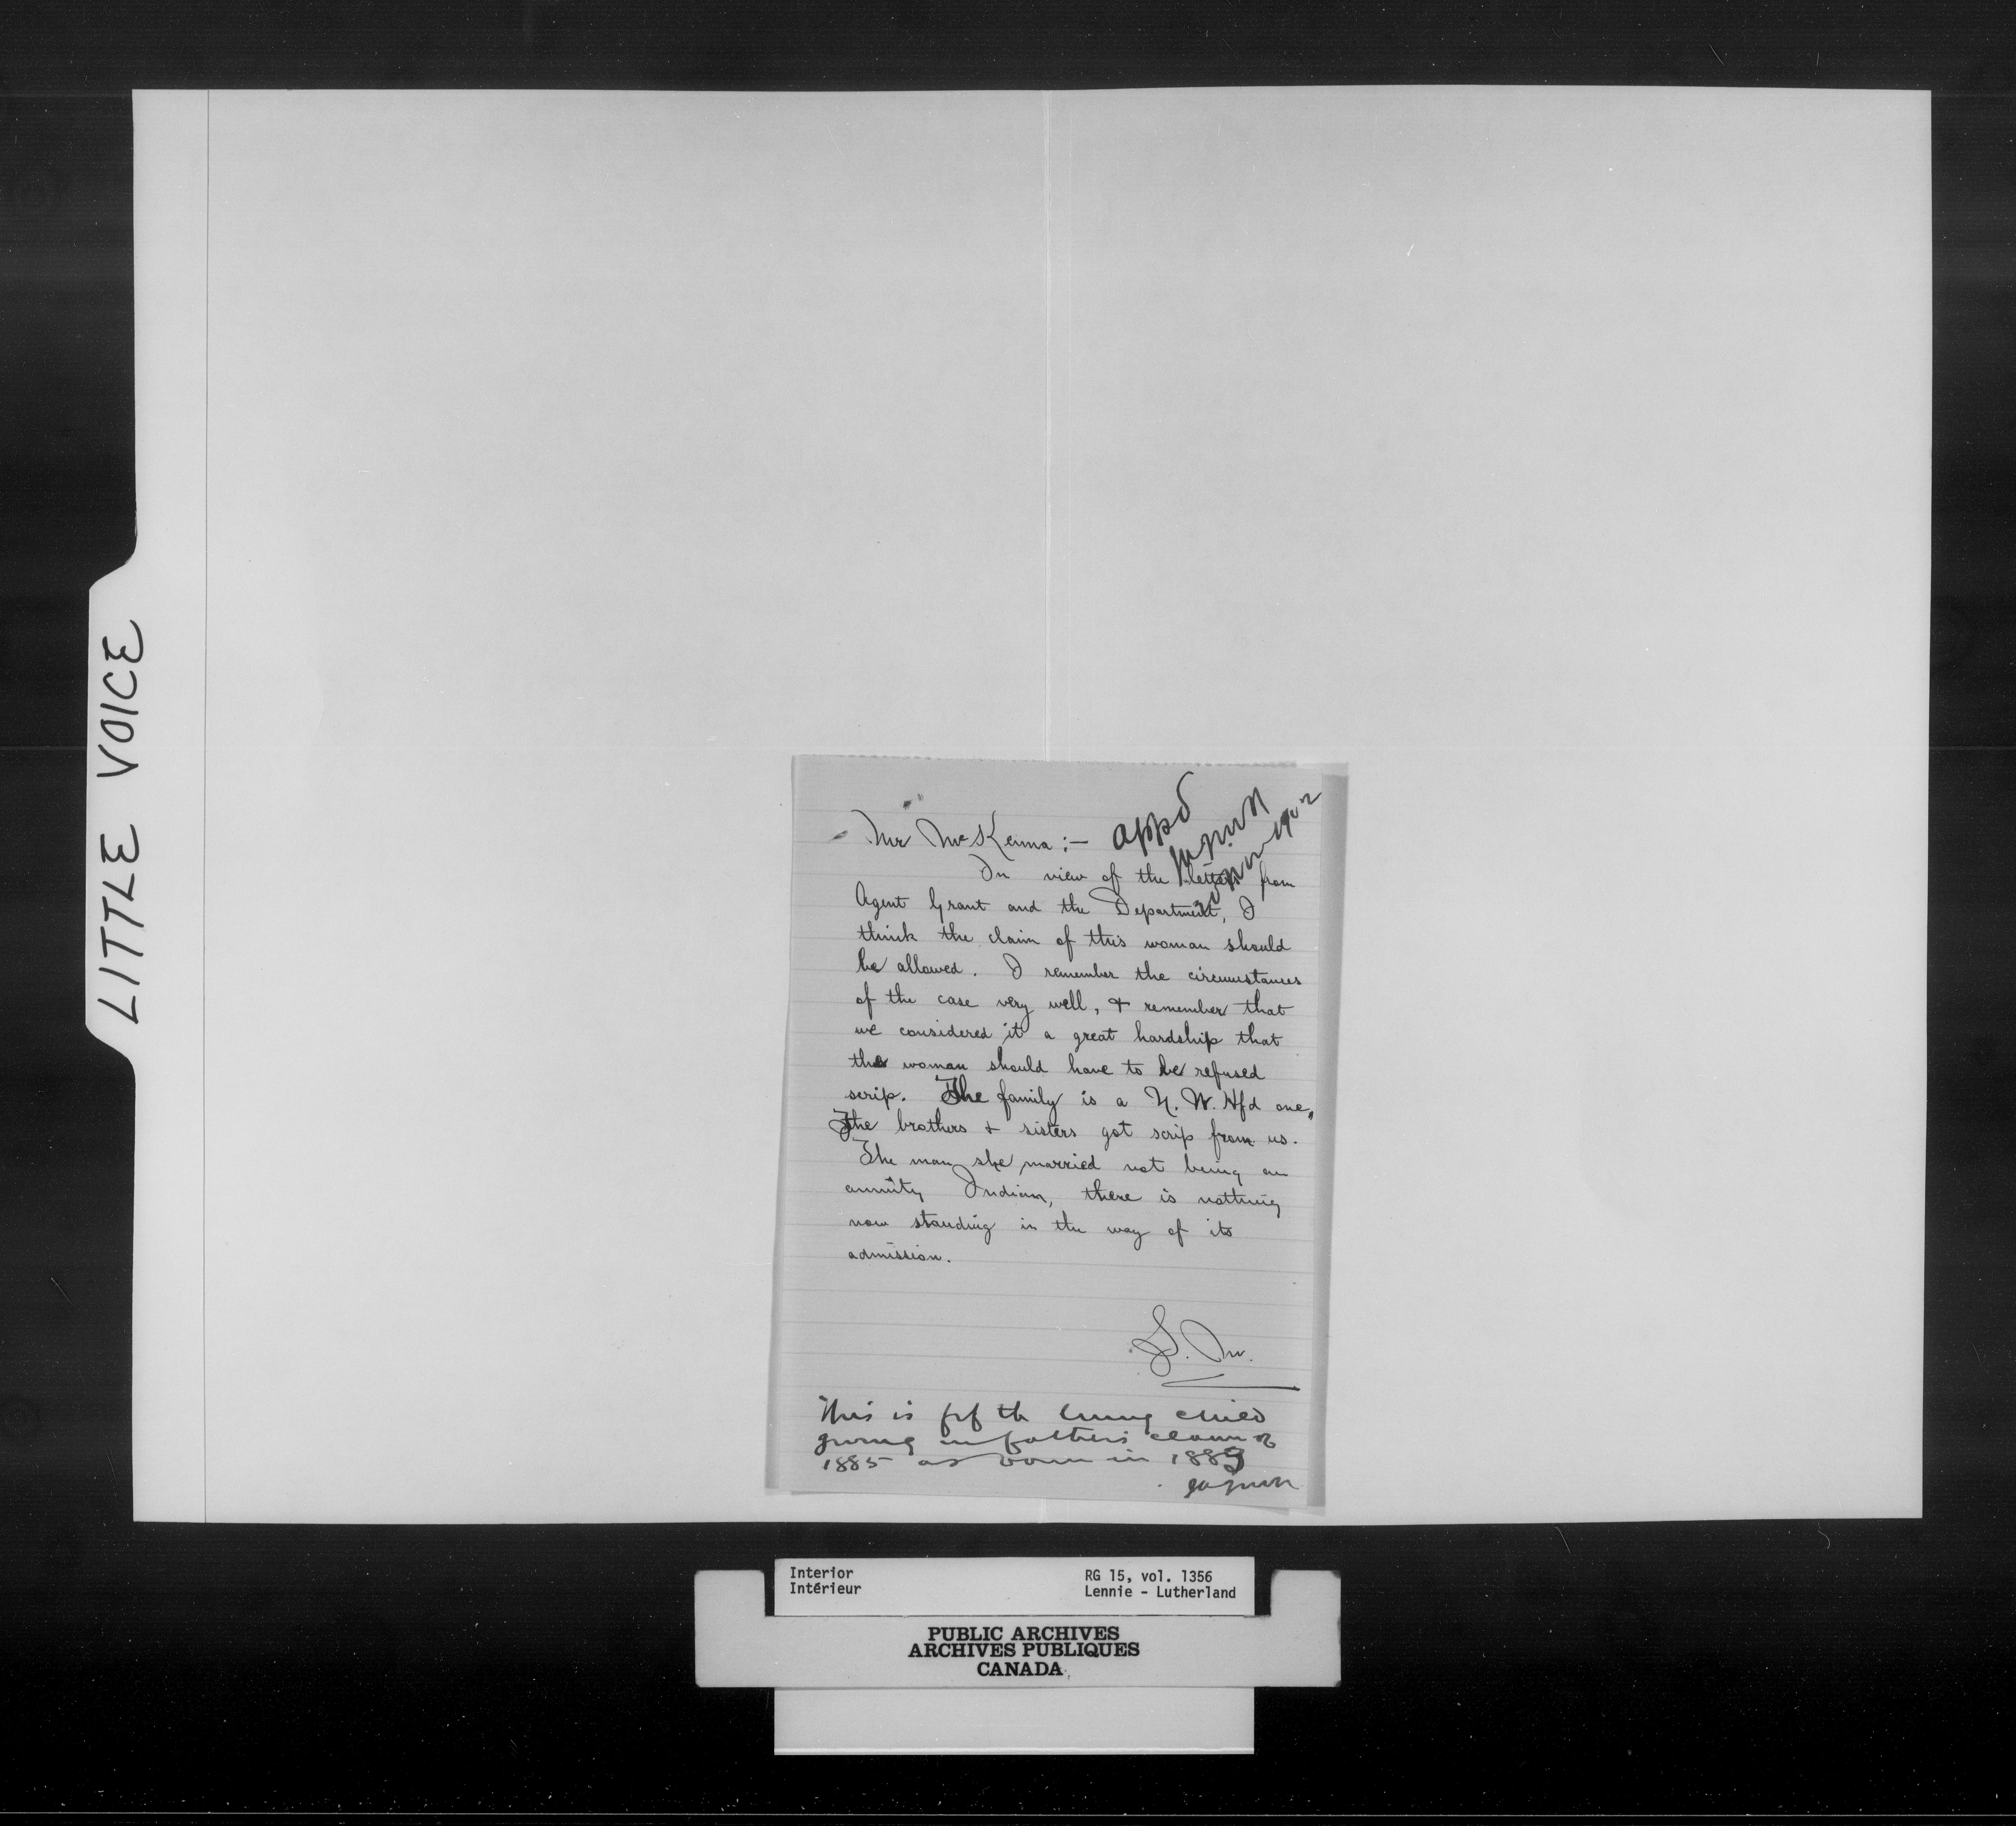 LITTLE VOICE
Mr McKenna :— appd
In view of the letters from
Agent Grant and the Department, I
think the claim of this woman should
be allowed. I remember the circumstances
of the case very well, + remember that
we considered it a great hardship that
the woman should have to be refused
scrip. The family is a N. W. Hfd one,
The brothers + sisters got scrip from us.
The man she married not being an
annuity Indian, there is nothing
now standing in the way of its
admission.
This is fifth living child
giving in fathers claim of
1885 as born in 1883
Interior
Intérieur
RG 15, vol. 1356
Lennie - Lutherland
PUBLIC ARCHIVES
ARCHIVES PUBLIQUES
CANADA